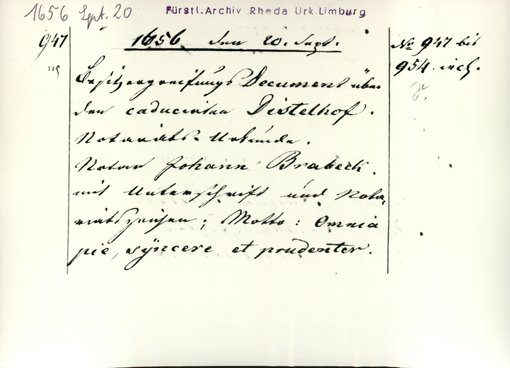 1656 Sept. 20
Fürstl. Archiv Rheda Urk. Limburg
947
1656. den 20. Sept.
No 947 bis
954. incl.
Besitzergreifungs Document über
den caducirten Distelhof.
Notariats-Urkunde.
Notar Johann Brabeck
mit Unterschrift und Nota,
riatszeichen; Motto: Omnia
pie, syncere et prudenter.